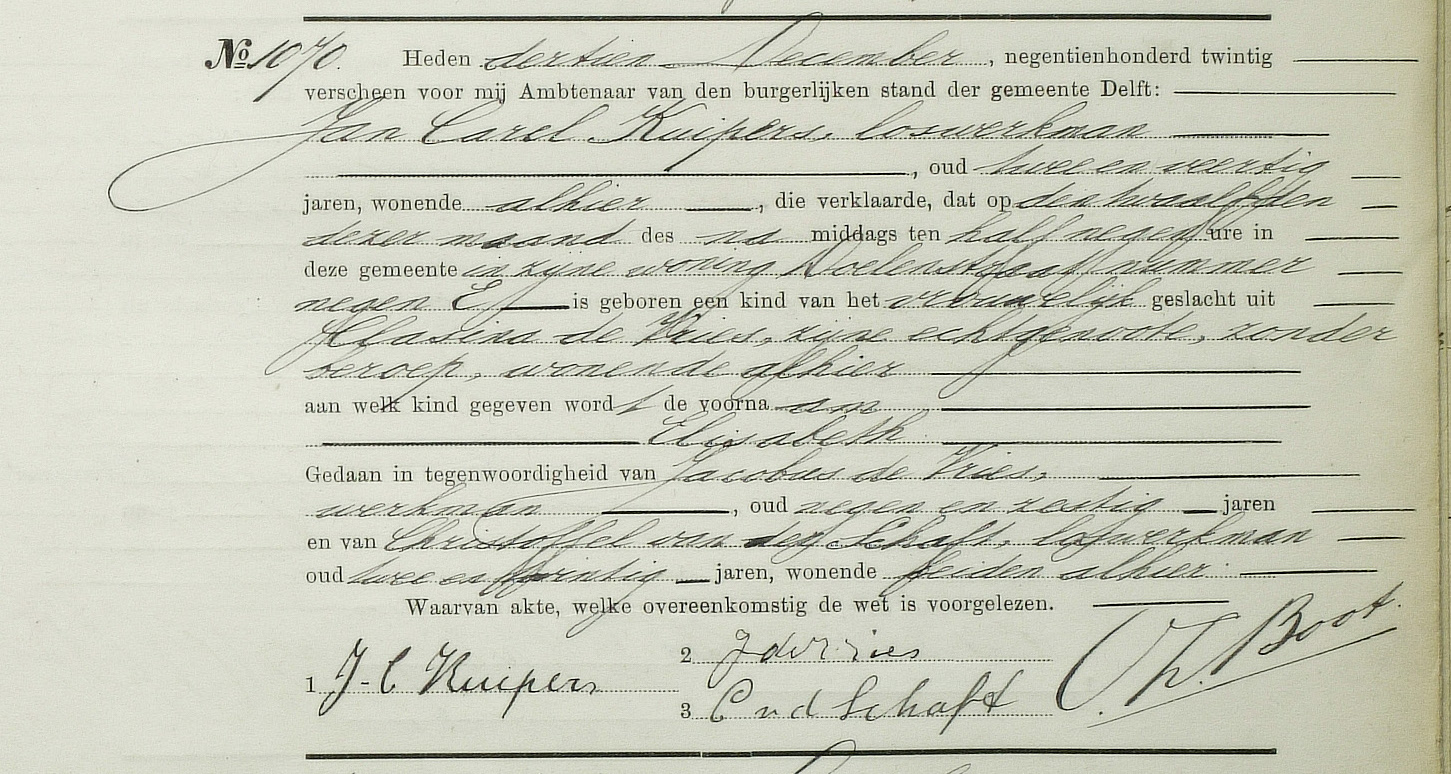 No 1070. Heden dertien December, negentienhonderd twintig
verscheen voor mij Ambtenaar van den burgerlijken stand der gemeente Delft:
Jan Carel Kuipers, loswerkman
, oud twee en veertig
jaren, wonende alhier, die verklaarde, dat op den twaalfden
dezer maand des na middags ten half negen ure in
deze gemeente in zijne woning Doelenstraat nummer
negen E is geboren een kind van het vrouwelijk geslacht uit
Klasina de Vries, zijne echtgenoote, zonder
beroep, wonende alhier
aan welk kind gegeven wordt de voorna am
Elisabeth.
Gedaan in tegenwoordigheid van Jacobus de Vries,
werkman, oud negen en zestig jaren
en van Christoffel van der Schaft, loswerkman
oud twee en twintig jaren, wonende beiden alhier.
Waarvan akte, welke overeenkomstig de wet is voorgelezen.
1 J-C Kuipers
2 J de Vries
3 C v d Schaft
Th. Boot.